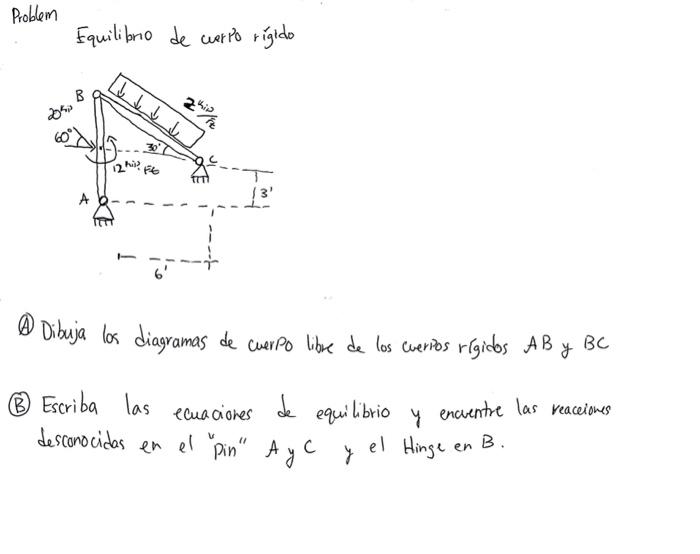 Problem
Equilibrio de cuerpo rígido
B
20 kip
60°
2 kip/ft
30°
C
12 kip·ft
A
3'
6'
Ⓐ Dibuja los diagramas de cuerpo libre de los cuerpos rígidos AB y BC
Ⓑ Escriba las ecuaciones de equilibrio y encuentre las reacciones
desconocidas en el "pin" A y C y el Hinge en B.